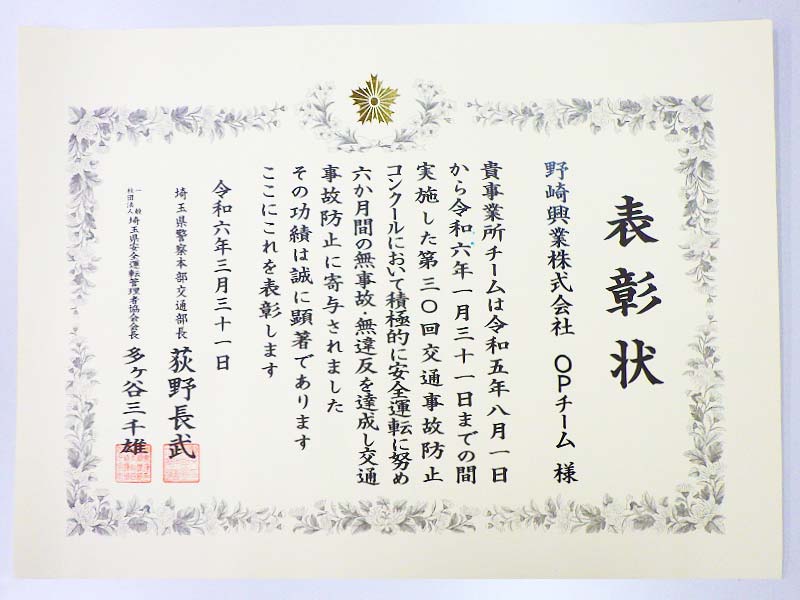 表彰状
野崎興業株式会社 OPチーム 様
貴事業所チームは令和五年八月一日
から令和六年一月三十一日までの間
実施した第三〇回交通事故防止
コンクールにおいて積極的に安全運転に努め
六か月間の無事故・無違反を達成し交通
事故防止に寄与されました
その功績は誠に顕著であります
ここにこれを表彰します
令和六年三月三十一日
埼玉県警察本部交通部長 荻野長武
一般社団法人 埼玉県安全運転管理者協会会長 多ヶ谷三千雄